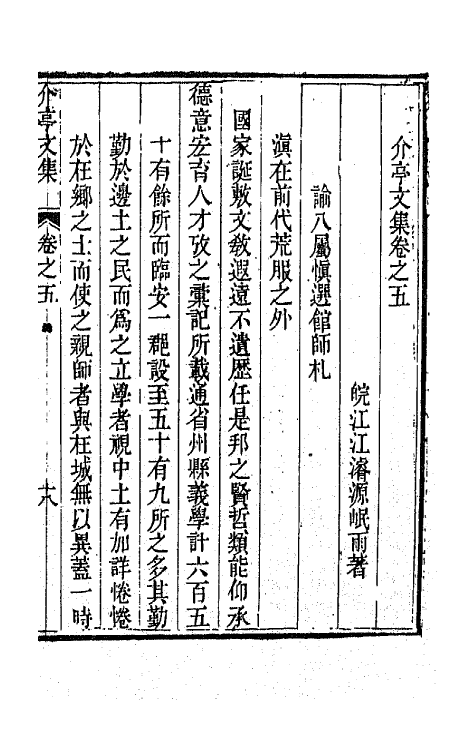 介亭文集卷之五
皖江江濬源岷雨著
諭八屬愼選館師札
滇在前代荒服之外
國家誕敷文敎遐遠不遺歷任是邦之賢哲類能仰承
德意宏育人才攷之彙記所載通省州縣義學計六百五
十有餘所而臨安一郡設至五十有九所之多其勤
勤於邊土之民而爲之立學者視中土有加詳惓惓
於在鄉之士而使之親師者與在城無以異蓋一時
介亭文集
卷之五
十八